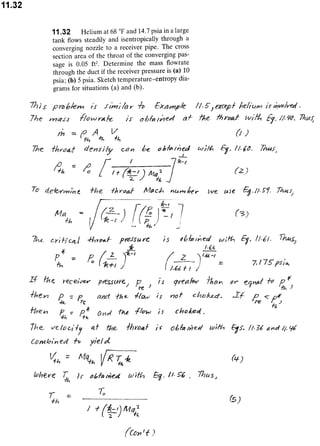 11.32
11.32 Helium at 68 °F and 14.7 psia in a large
tank flows steadily and isentropically through a
converging nozzle to a receiver pipe. The cross
section area of the throat of the converging pas-
sage is 0.05 ft². Determine the mass flowrate
through the duct if the receiver pressure is (a) 10
psia; (b) 5 psia. Sketch temperature–entropy dia-
grams for situations (a) and (b).
This problem is similar to Example 11.5, except helium is involved.
The mass flowrate is obtained at the throat with Eq. 11.40. Thus,
ṁ = ρth Ath Vth (1)
The throat density can be obtained with Eq. 11.60. Thus,
ρth = ρo [ 1 / (1 + ((k-1)/2) Math²) ]^(1/(k-1)) (2)
To determine the throat Mach number we use Eq. 11.59. Thus,
Math = √( (2/(k-1)) [ (po/pth)^((k-1)/k) - 1 ] ) (3)
The critical throat pressure is obtained with Eq. 11.61. Thus,
p*th = po (2/(k+1))^(k/(k-1)) (2/(1.66+1))^(1.66/(1.66-1)) = 7.175 psia
If the receiver pressure, pre, is greater than or equal to p*th,
then pth = pre and the flow is not choked. If pre < p*th,
then pth = p*th and the flow is choked.
The velocity at the throat is obtained with Eqs. 11.36 and 11.46
combined to yield
Vth = Math √(R Tth k) (4)
where Tth is obtained with Eq. 11.56. Thus,
Tth = To / (1 + ((k-1)/2) Math²) (5)
(con't)